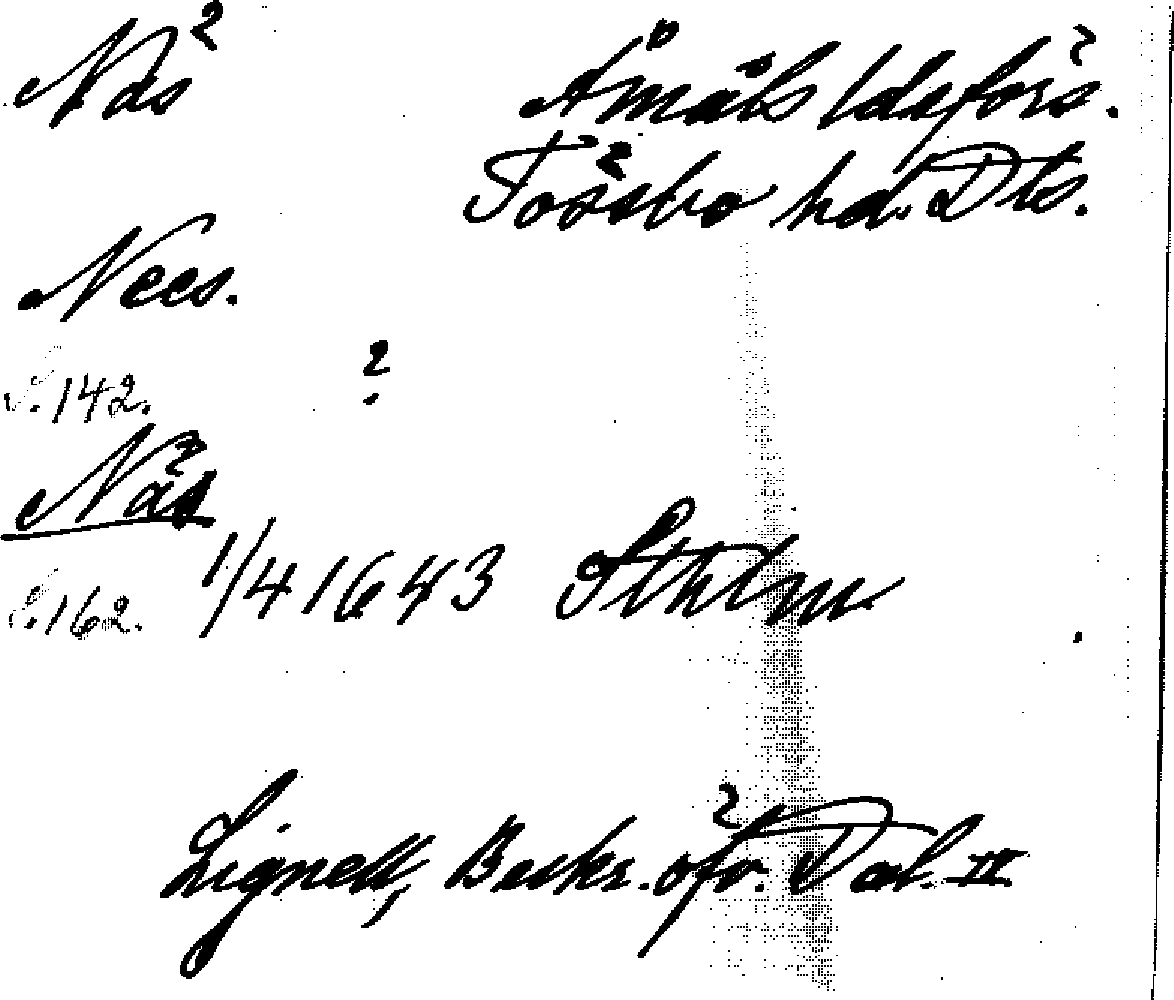 Näs Åmåls ldsförs.
Tössbo hd. Dls.
Nees.
S. 142. ?
Näs
S. 162. 1/4 1643 Sthlm
Lignell, Beskr. öfv. Dal. II